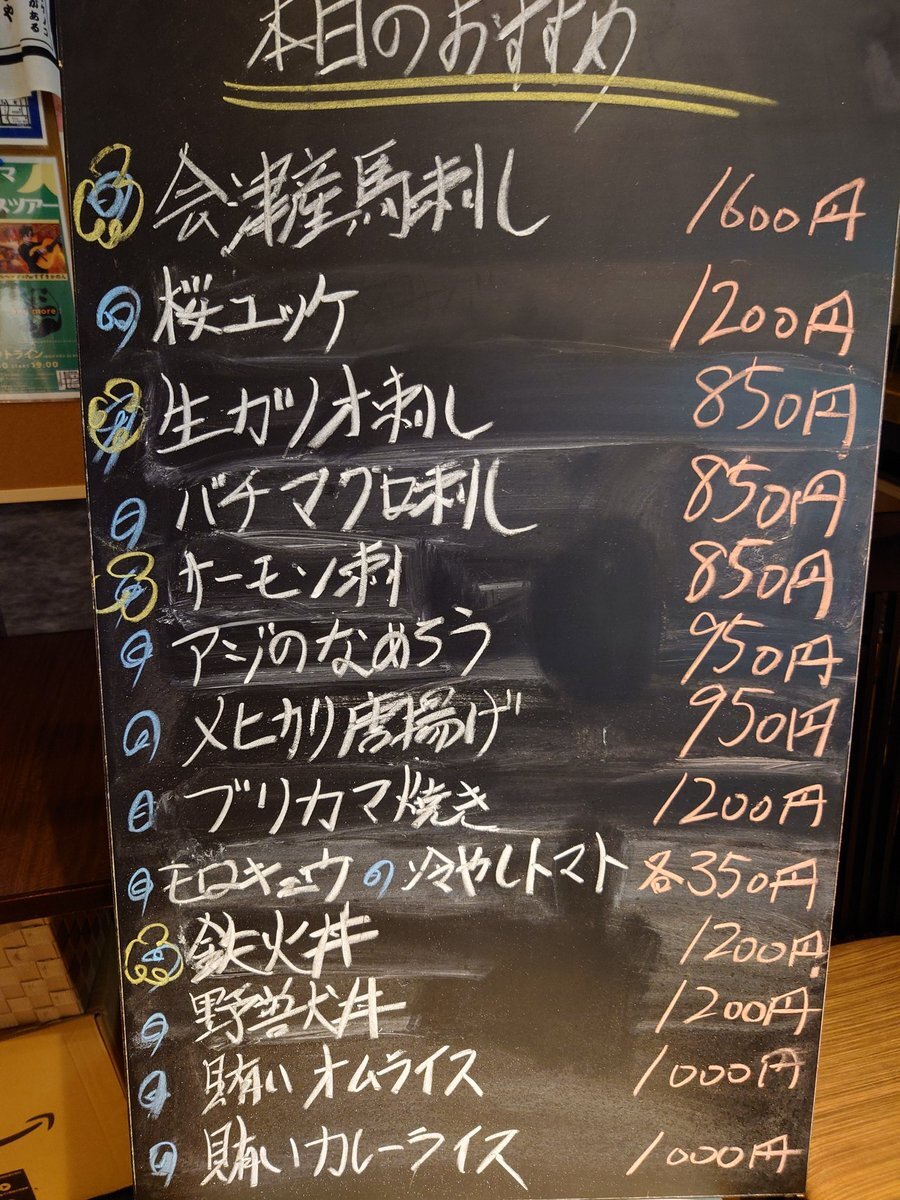 がある
マ
スツアー
more
START 19:00
本日のおすすめ
会津産馬刺し 1600円
桜ユッケ 1200円
生ガツオ刺し 850円
バチマグロ刺し 850円
サーモン刺 850円
アジのなめろう 950円
メヒカリ唐揚げ 950円
ブリカマ焼き 1200円
モロキュウ 冷やしトマト 各350円
鉄火丼 1200円
野獣丼 1200円
賄いオムライス 1000円
賄いカレーライス 1000円